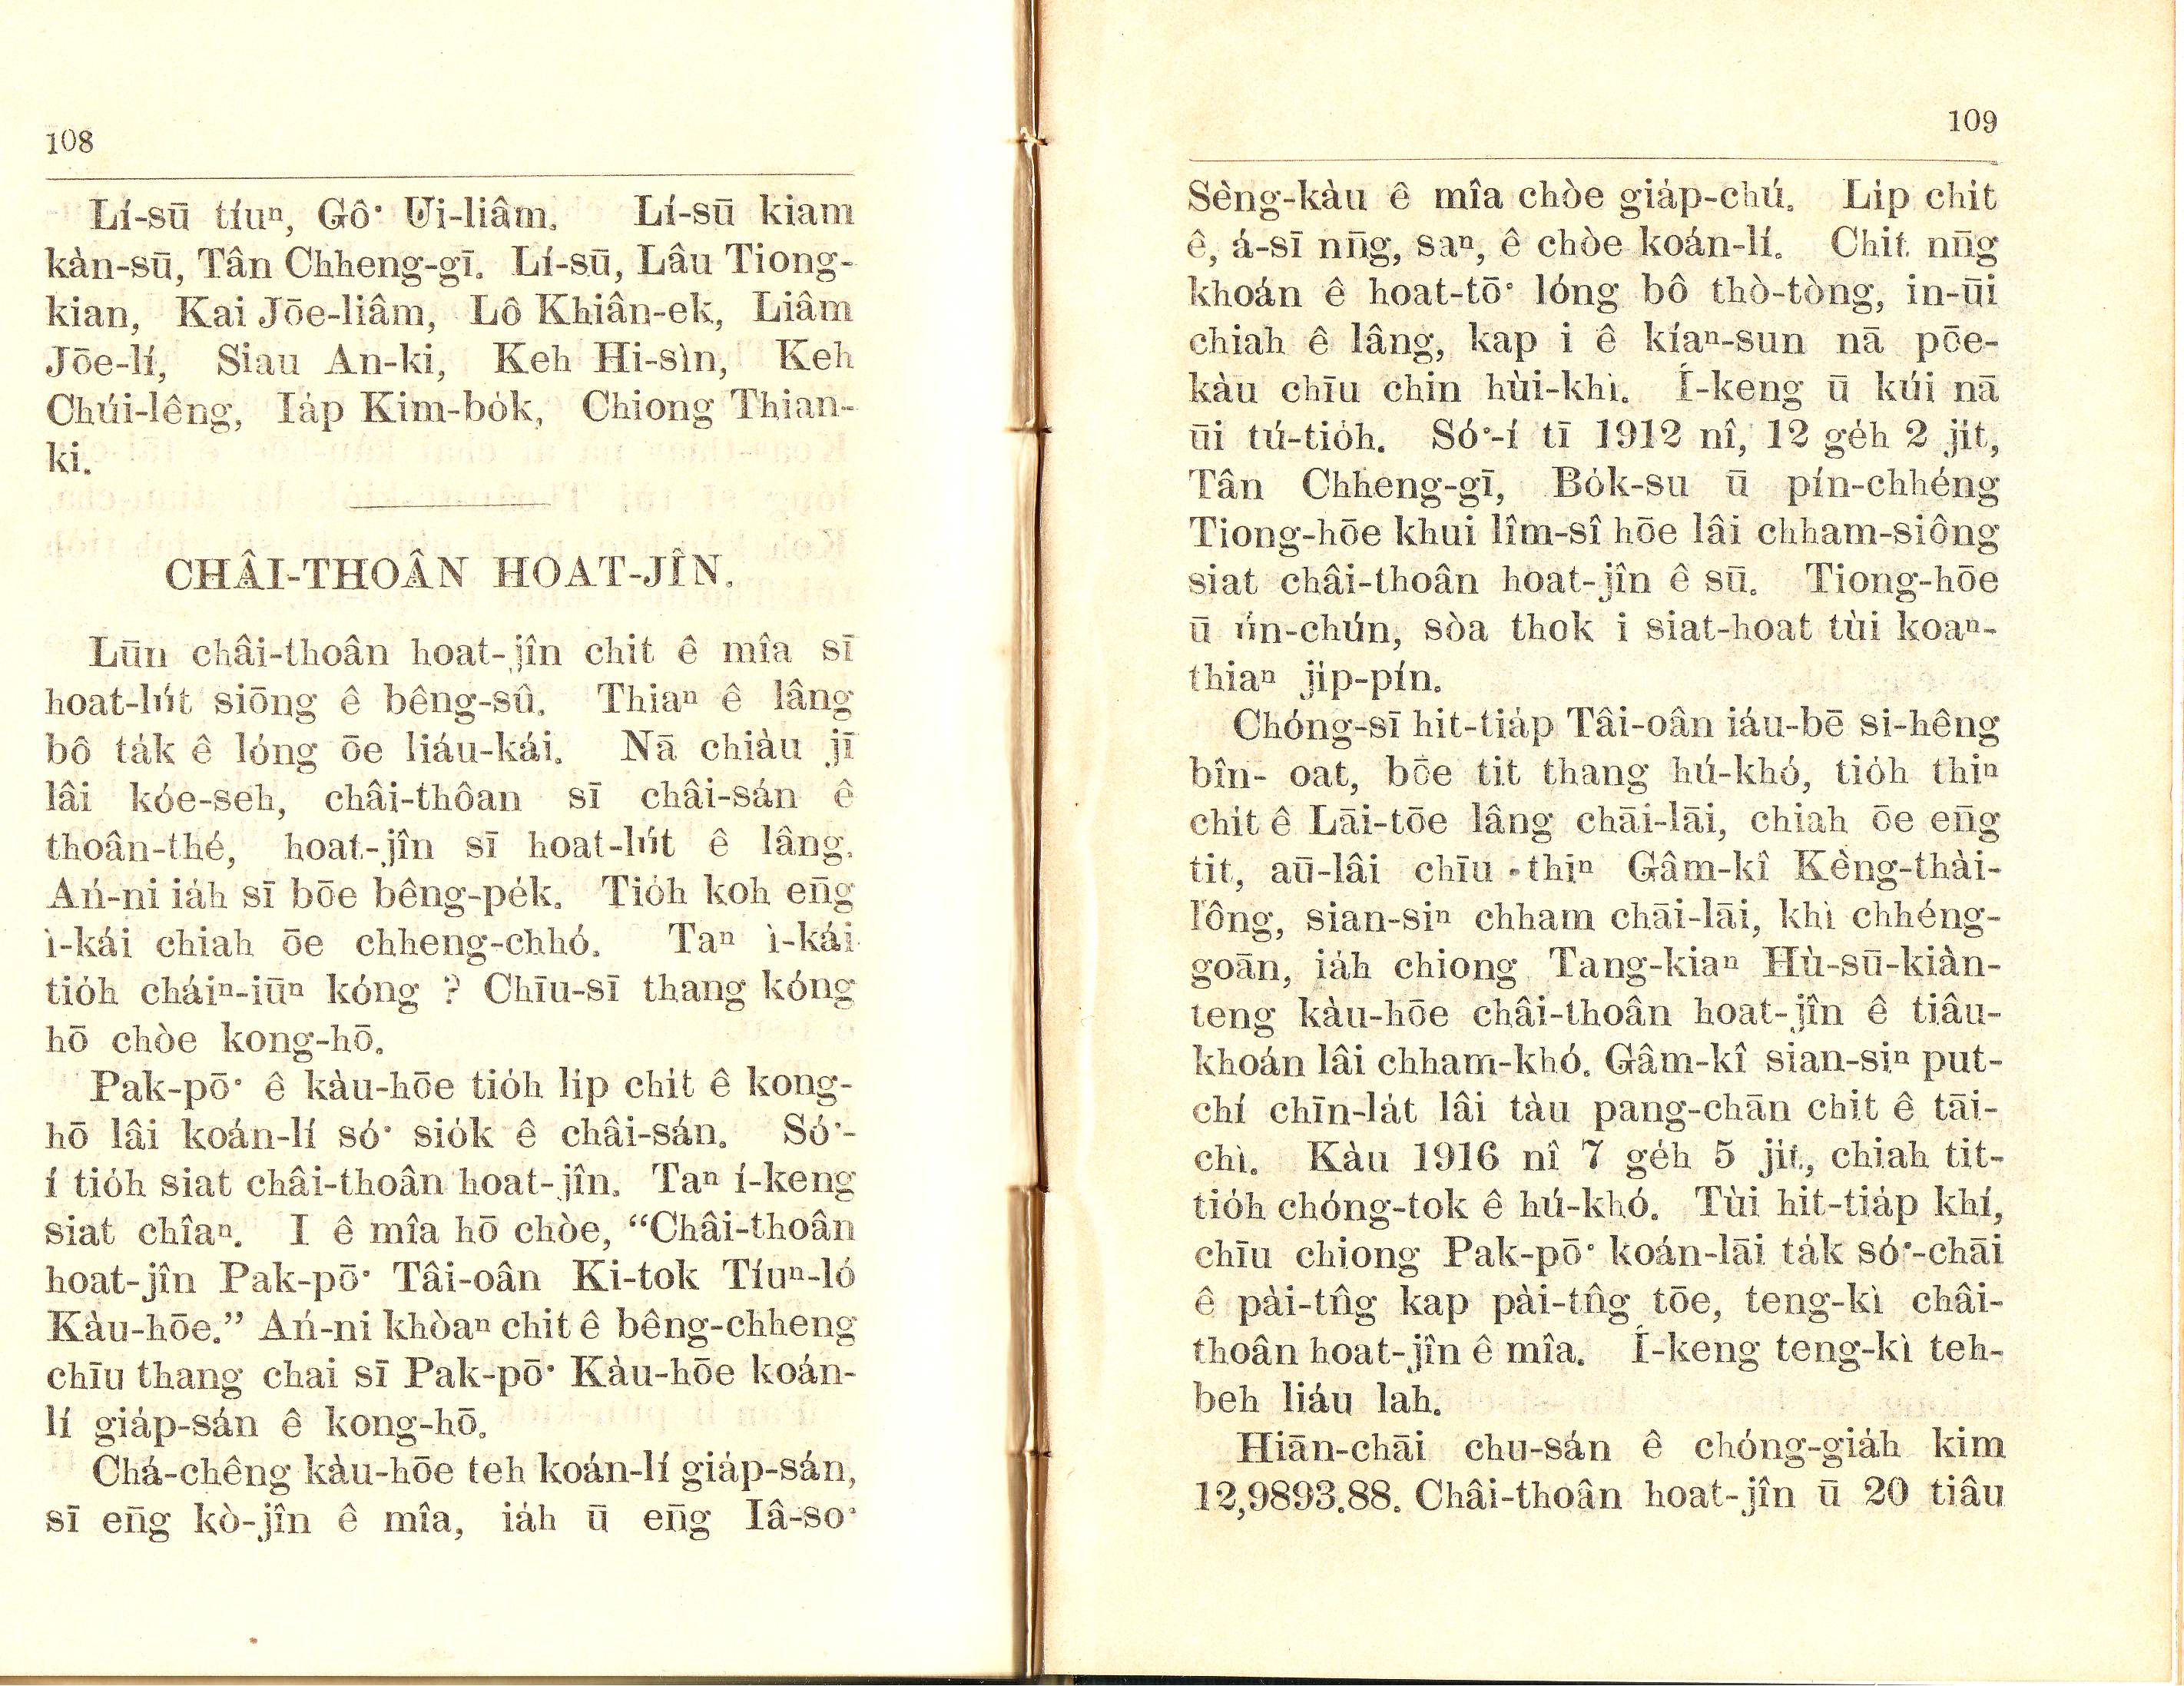 108
Lí-sū tíuⁿ, Gô͘ Ui-liâm. Lí-sū kiam
kàn-sū, Tân Chheng-gī. Lí-sū, Lâu Tiong-
kian, Kai Jōe-liâm, Lô Khiân-ek, Liâm
Jōe-lí, Siau An-ki, Keh Hi-sìn, Keh
Chúi-lêng, Ia̍p Kim-bo̍k, Chiong Thian-
ki.
CHÂI-THOÂN HOAT-JÎN.
Lūn châi-thoân hoat-jîn chit ê mîa sī
hoat-lu̍t siōng ê bêng-sû. Thiaⁿ ê lâng
bô ta̍k ê lóng ōe liáu-kái. Nā chiàu jī
lâi kóe-seh, châi-thôan sī châi-sán ê
thoân-thé, hoat-jîn sī hoat-lu̍t ê lâng.
Ań-ni ia̍h sī bōe bêng-pe̍k. Tio̍h koh en̄g
ì-kái chiah ōe chheng-chhó. Taⁿ ì-kái
tio̍h cháiⁿ-iūⁿ kóng ? Chīu-sī thang kóng
hō chòe kong-hō.
Pak-pō͘ ê kàu-hōe tio̍h li̍p chi̍t ê kong-
hō lâi koán-lí só͘ sio̍k ê châi-sán. Só͘-
í tio̍h siat châi-thoân hoat-jîn. Taⁿ í-keng
siat chîaⁿ. I ê mîa hō chòe, “Châi-thoân
hoat-jîn Pak-pō͘ Tâi-oân Ki-tok Tíuⁿ-ló
Kàu-hōe.” Ań-ni khòaⁿ chit ê bêng-chheng
chīu thang chai sī Pak-pō͘ Kàu-hōe koán-
lí gia̍p-sán ê kong-hō.
Chá-chêng kàu-hōe teh koán-lí gia̍p-sán,
sī en̄g kò-jîn ê mîa, ia̍h ū en̄g Iâ-so͘
109
Sèng-kàu ê mîa chòe gia̍p-chú. Li̍p chit
ê, á-sī nn̄g, saⁿ, ê chòe koán-lí. Chit nn̄g
khoán ê hoat-tō͘ lóng bô thò-tòng, in-ūi
chiah ê lâng, kap i ê kíaⁿ-sun nā pōe-
kàu chīu chin hùi-khì. Í-keng ū kúi nā
ūi tú-tio̍h. Só͘-í tī 1912 nî, 12 ge̍h 2 ji̍t,
Tân Chheng-gī, Bo̍k-su ū pín-chhéng
Tiong-hōe khui lîm-sî hōe lâi chham-siông
siat châi-thoân hoat-jîn ê sū. Tiong-hōe
ū ún-chún, sòa thok i siat-hoat tùi koaⁿ-
thiaⁿ ji̍p-pín.
Chóng-sī hit-tia̍p Tâi-oân iáu-bē si-hêng
bîn- oat, bōe tit thang hú-khó, tio̍h thìⁿ
chi̍t ê Lāi-tōe lâng chāi-lāi, chiah ōe en̄g
tit, aū-lâi chīu thìⁿ Gâm-kî Kèng-thài-
lông, sian-siⁿ chham chāi-lāi, khì chhéng-
goān, ia̍h chiong Tang-kiaⁿ Hù-sū-kiàn-
teng kàu-hōe châi-thoân hoat-jîn ê tiâu-
khoán lâi chham-khó. Gâm-kî sian-siⁿ put-
chí chīn-la̍t lâi tàu pang-chān chit ê tāi-
chì. Kàu 1916 nî 7 ge̍h 5 ji̍t, chiah tit-
tio̍h chóng-tok ê hú-khó. Tùi hit-tia̍p khí,
chīu chiong Pak-pō͘ koán-lāi ta̍k só͘-chāi
ê pài-tn̂g kap pài-tn̂g tōe, teng-kì châi-
thoân hoat-jîn ê mîa. Í-keng teng-kì teh-
beh liáu lah.
Hiān-chāi chu-sán ê chóng-gia̍h kim
12,9893.88. Châi-thoân hoat-jîn ū 20 tiâu